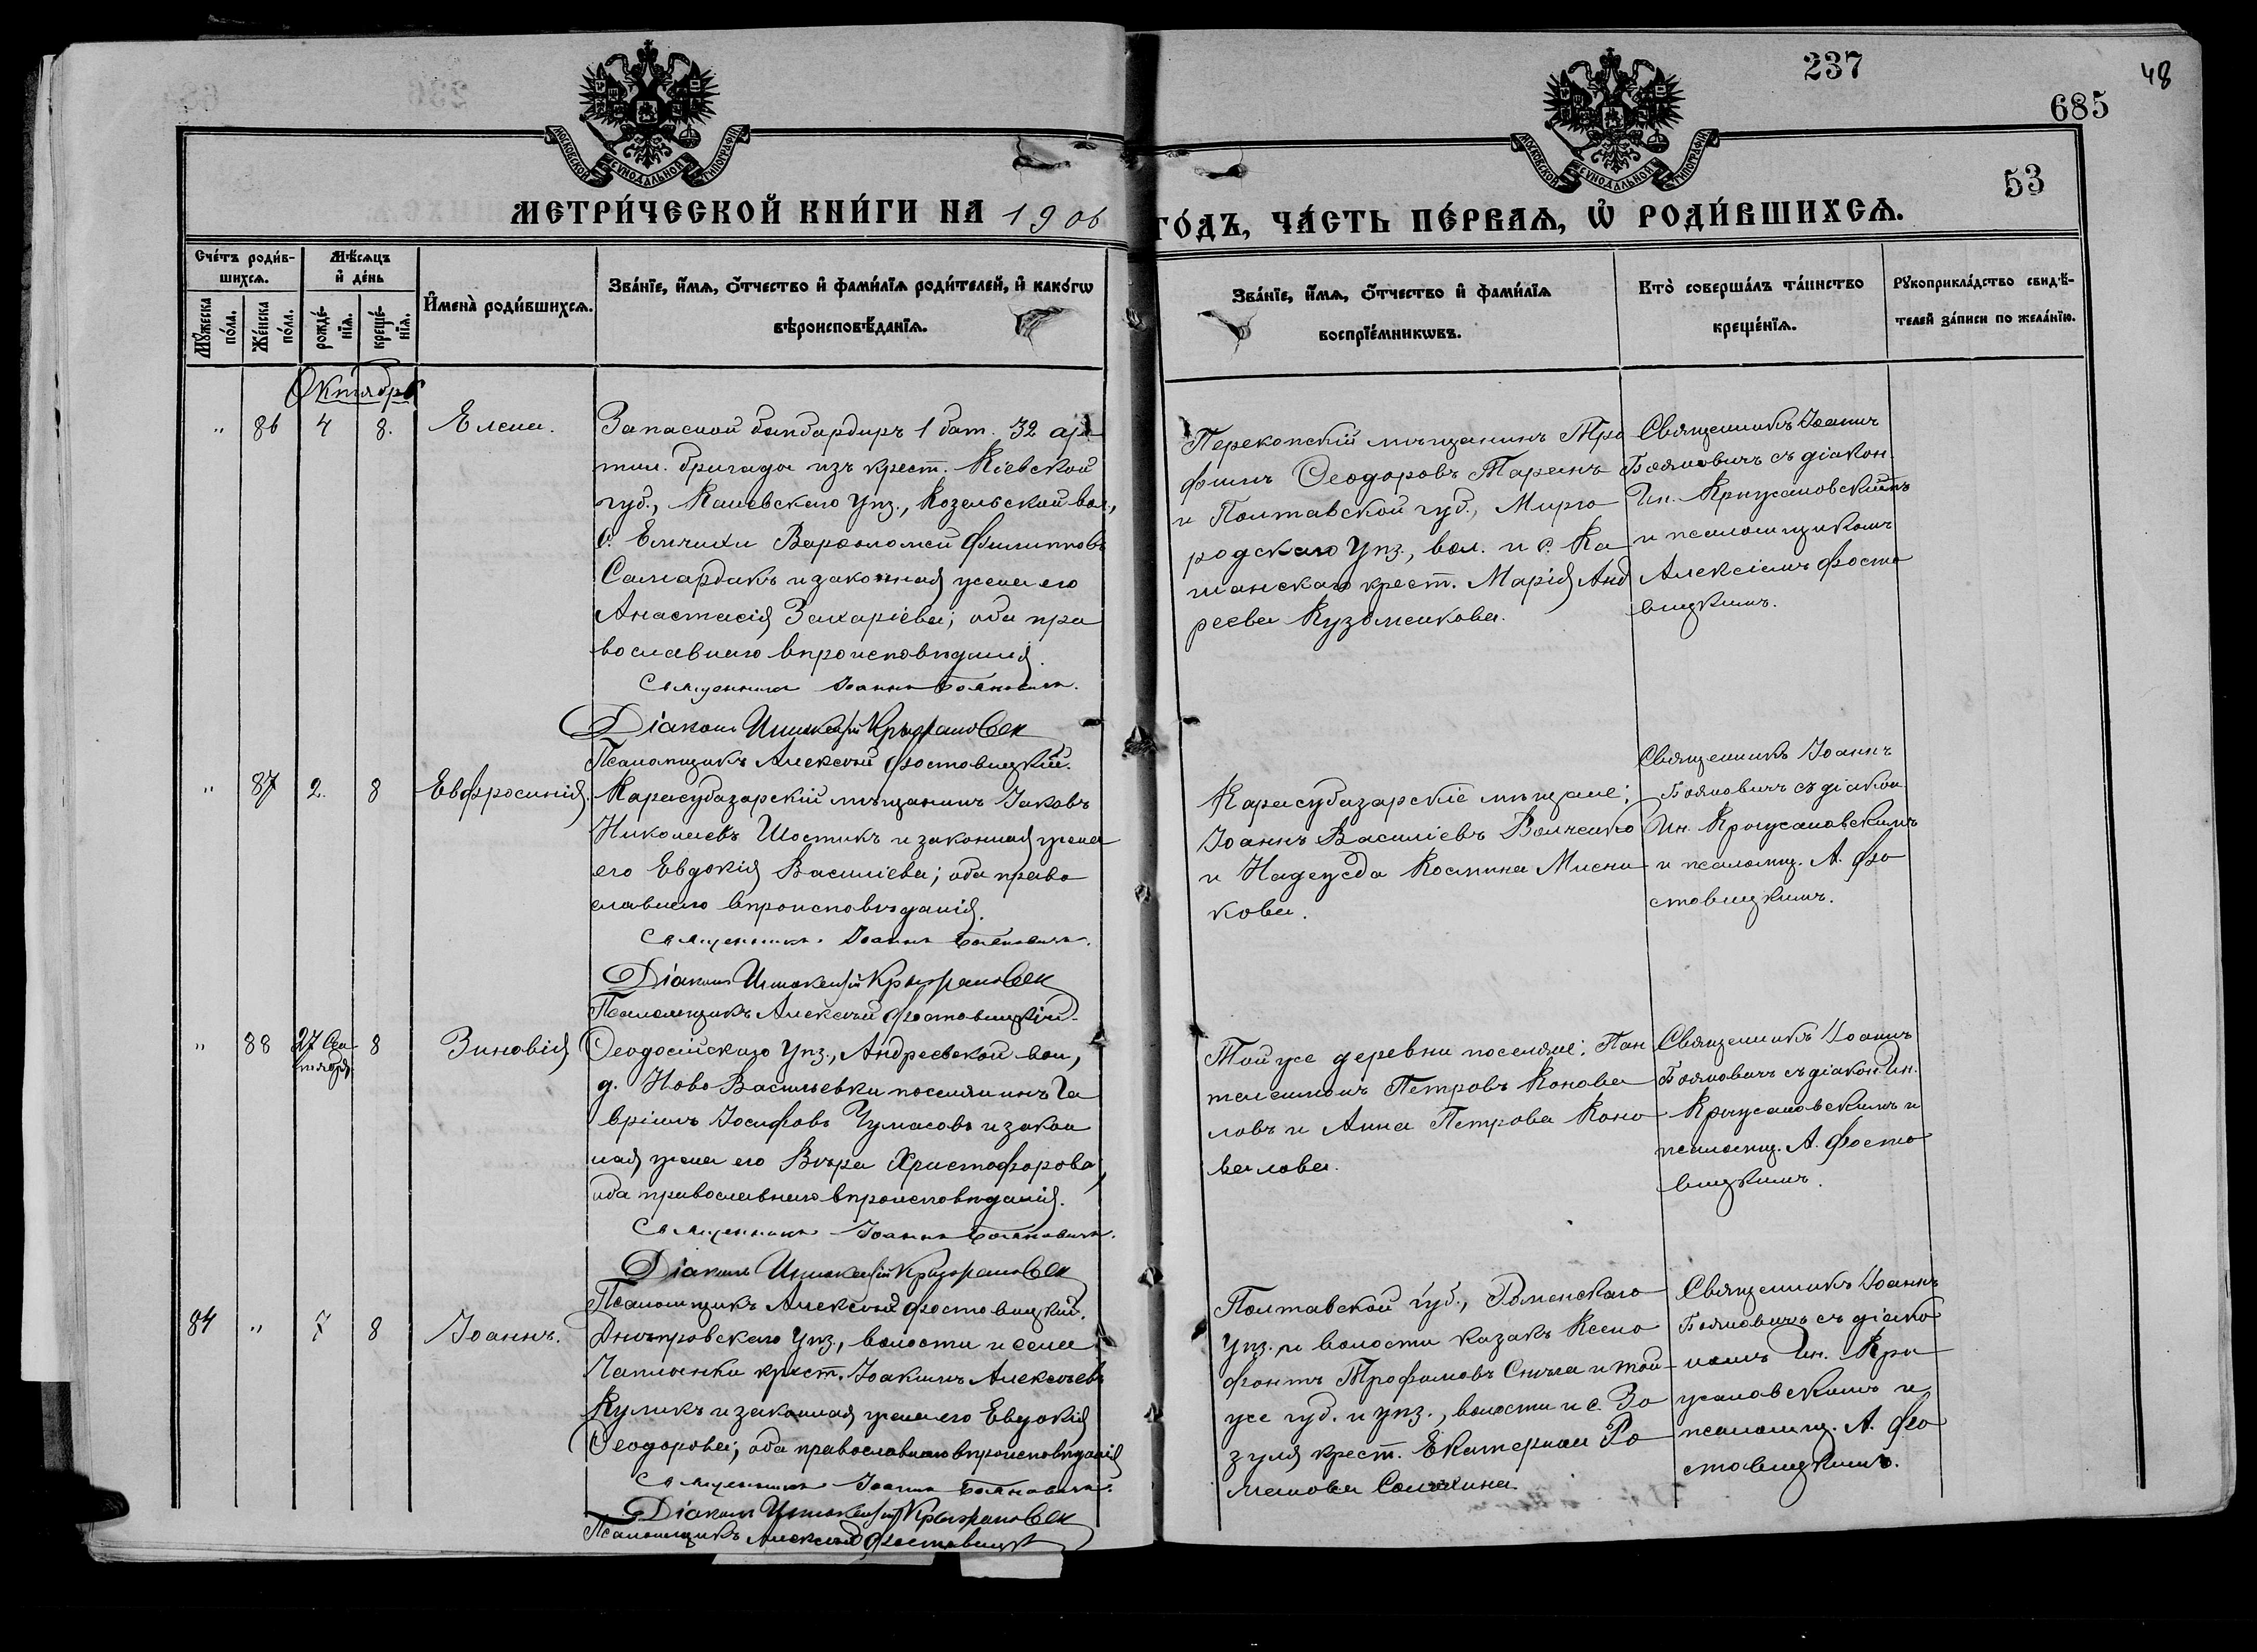 237
48
685
53
МОСКОВСКОЙ СѴНОДАЛЬНОЙ ТИПОГРАФІИ
МОСКОВСКОЙ СѴНОДАЛЬНОЙ ТИПОГРАФІИ
МЕТРИ́ЧЕСКОЙ КНИ́ГИ НА 1906
ГО́ДЪ, ЧА́СТЬ ПЕ́РВАѦ, Ѡ҆ РОДИ́ВШИХСѦ.
Сче́тъ роди́в-
шихсѧ.
Мѣ́сѧцъ
и҆ де́нь
Мꙋ́жеска по́ла.
Же́нска по́ла.
рожде́-
нїѧ.
креще́-
нїѧ.
И҆мена̀ роди́вшихсѧ.
Зва́нїе, и҆́мѧ, ѻ҆́тчество и҆ фами́лїѧ роди́телей, и҆ како́гѡ
вѣроисповѣ́данїѧ.
Зва́нїе, и҆́мѧ, ѻ҆́тчество и҆ фами́лїѧ
воспрїе́мникѡвъ.
Кто̀ соверша́лъ та́инство
креще́нїѧ.
Рꙋкоприкла́дство свидѣ́-
телей за́писи по жела́нїю.
Октябрь
" 86 4 8. Елена.
Запасной бомбардиръ 1 бат. 32 ар-
тил. бригады изъ крест. Кіевской
губ., Каневскаго уѣз., Козельской вол.,
с. Емчихи Варѳоломей Филипповъ
Самардакъ и законная жена его
Анастасія Захаріева; оба пра
вославнаго вѣроисповѣданія.
Священникъ Іоаннъ Бояновичъ.
Діаконъ Иннокентій Крыжановск
Псаломщикъ Алексѣй Фостовицкій.
Перекопскій мѣщанинъ Тро
фимъ Ѳеодоровъ Таранъ
и Полтавской губ., Мирго
родскаго уѣз., вол. и с. Ка
шанскаго крест. Марія Анд
реева Кузьменкова.
Священникъ Іоаннъ
Бояновичъ съ діакон.
Ин. Крыжановскимъ
и псаломщикомъ
Алексіемъ Фосто
вицкимъ.
" 87 2. 8 Евфросинія.
Карасубазарскій мѣщанинъ Іаковъ
Николаевъ Шостакъ и законная жена
его Евдокія Василіева; оба право
славнаго вѣроисповѣданія.
Священникъ Іоаннъ Бояновичъ.
Діаконъ Иннокентій Крыжановск
Псаломщикъ Алексѣй Фостовицкій.
Карасубазарскіе мѣщане;
Іоаннъ Василіевъ Волченко
и Надежда Космина Мисни
кова.
Священникъ Іоаннъ
Бояновичъ съ діакон
Ин. Крыжановскимъ
и псаломщ. А. Фо
стовицкимъ.
" 88 27 Сен
тября 8 Зиновія
Ѳеодосійскаго уѣз., Андреевской вол.,
д. Ново Васильевки поселянинъ Га
вріилъ Іосифовъ Чумасовъ и закон
ная жена его Вѣра Христофорова;
оба православнаго вѣроисповѣданія.
Священникъ Іоаннъ Бояновичъ.
Діаконъ Иннокентій Крыжановск
Псаломщикъ Алексѣй Фостовицкій.
Той же деревни поселяне: Пан
телеимонъ Петровъ Конова
ловъ и Анна Петрова Коно
валова.
Священникъ Іоаннъ
Бояновичъ съ діакон. Ин.
Крыжановскимъ и
псаломщ. А. Фосто
вицкимъ.
84 " 7 8 Іоаннъ.
Днѣпровскаго уѣз., волости и села
Чаплынки крест. Іоакимъ Алексѣевъ
Куликъ и законная жена его Евдокія
Ѳеодорова; оба православнаго вѣроисповѣданія
Священникъ Іоаннъ Бояновичъ.
Діаконъ Иннокентій Крыжановск
Псаломщикъ Алексѣй Фостовицк
Полтавской губ., Роменскаго
уѣз. и волости казакъ Ксено
фонтъ Трофимовъ Снѣга и той
же губ. и уѣз., волости и с. Зо
зуля крест. Екатерина Ро
манова Солохина
Священникъ Іоаннъ
Бояновичъ съ діако
номъ Ин. Кры
жановскимъ и
псаломщ. А. Фо
стовицкимъ.